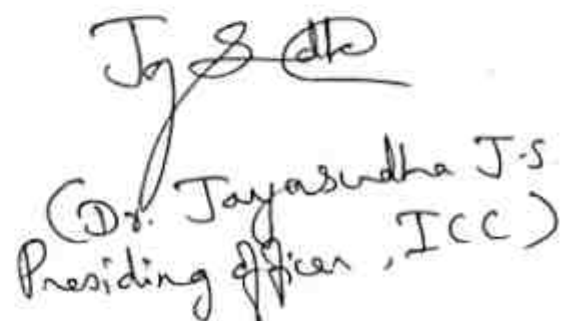 (Dr. Jayasudha J.S
Presiding Officer, ICC)